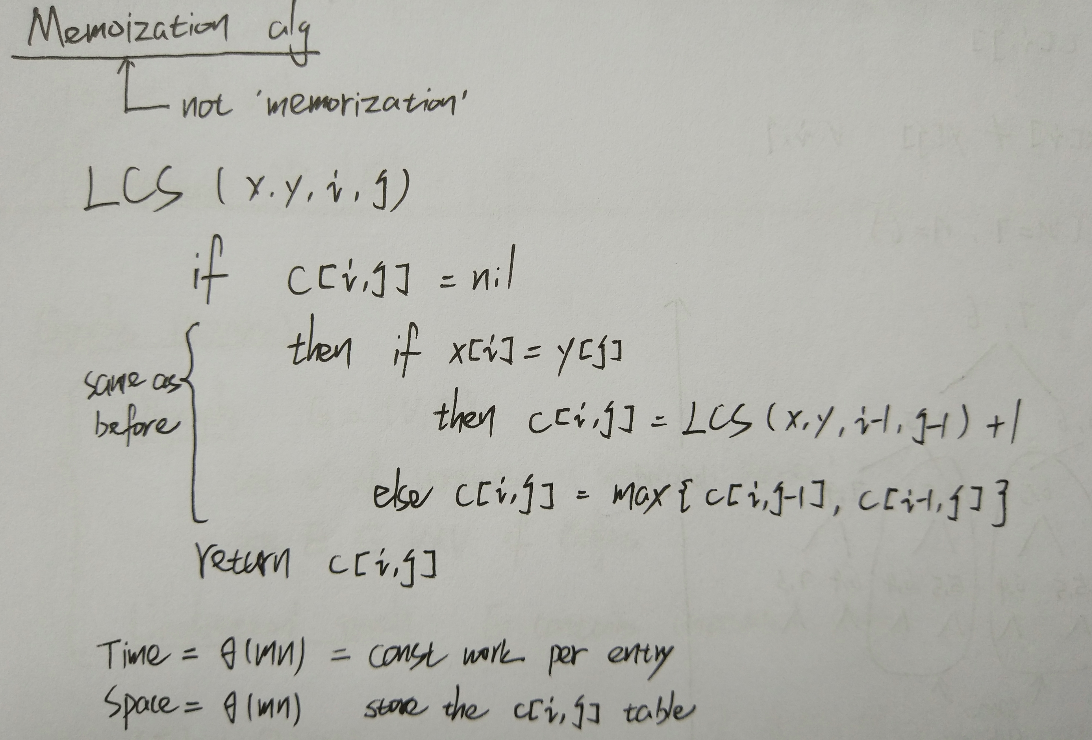 Memoization alg
not 'memorization'
LCS (x.y, i, j)
if c[i,j] = nil
then if x[i] = y[j]
same as
before
then c[i,j] = LCS (x,y, i-1, j-1) +1
else c[i,j] = max{ c[i,j-1], c[i-1,j]}
return c[i,j]
Time = θ(mn) = const work per entry
Space = θ(mn) store the c[i,j] table